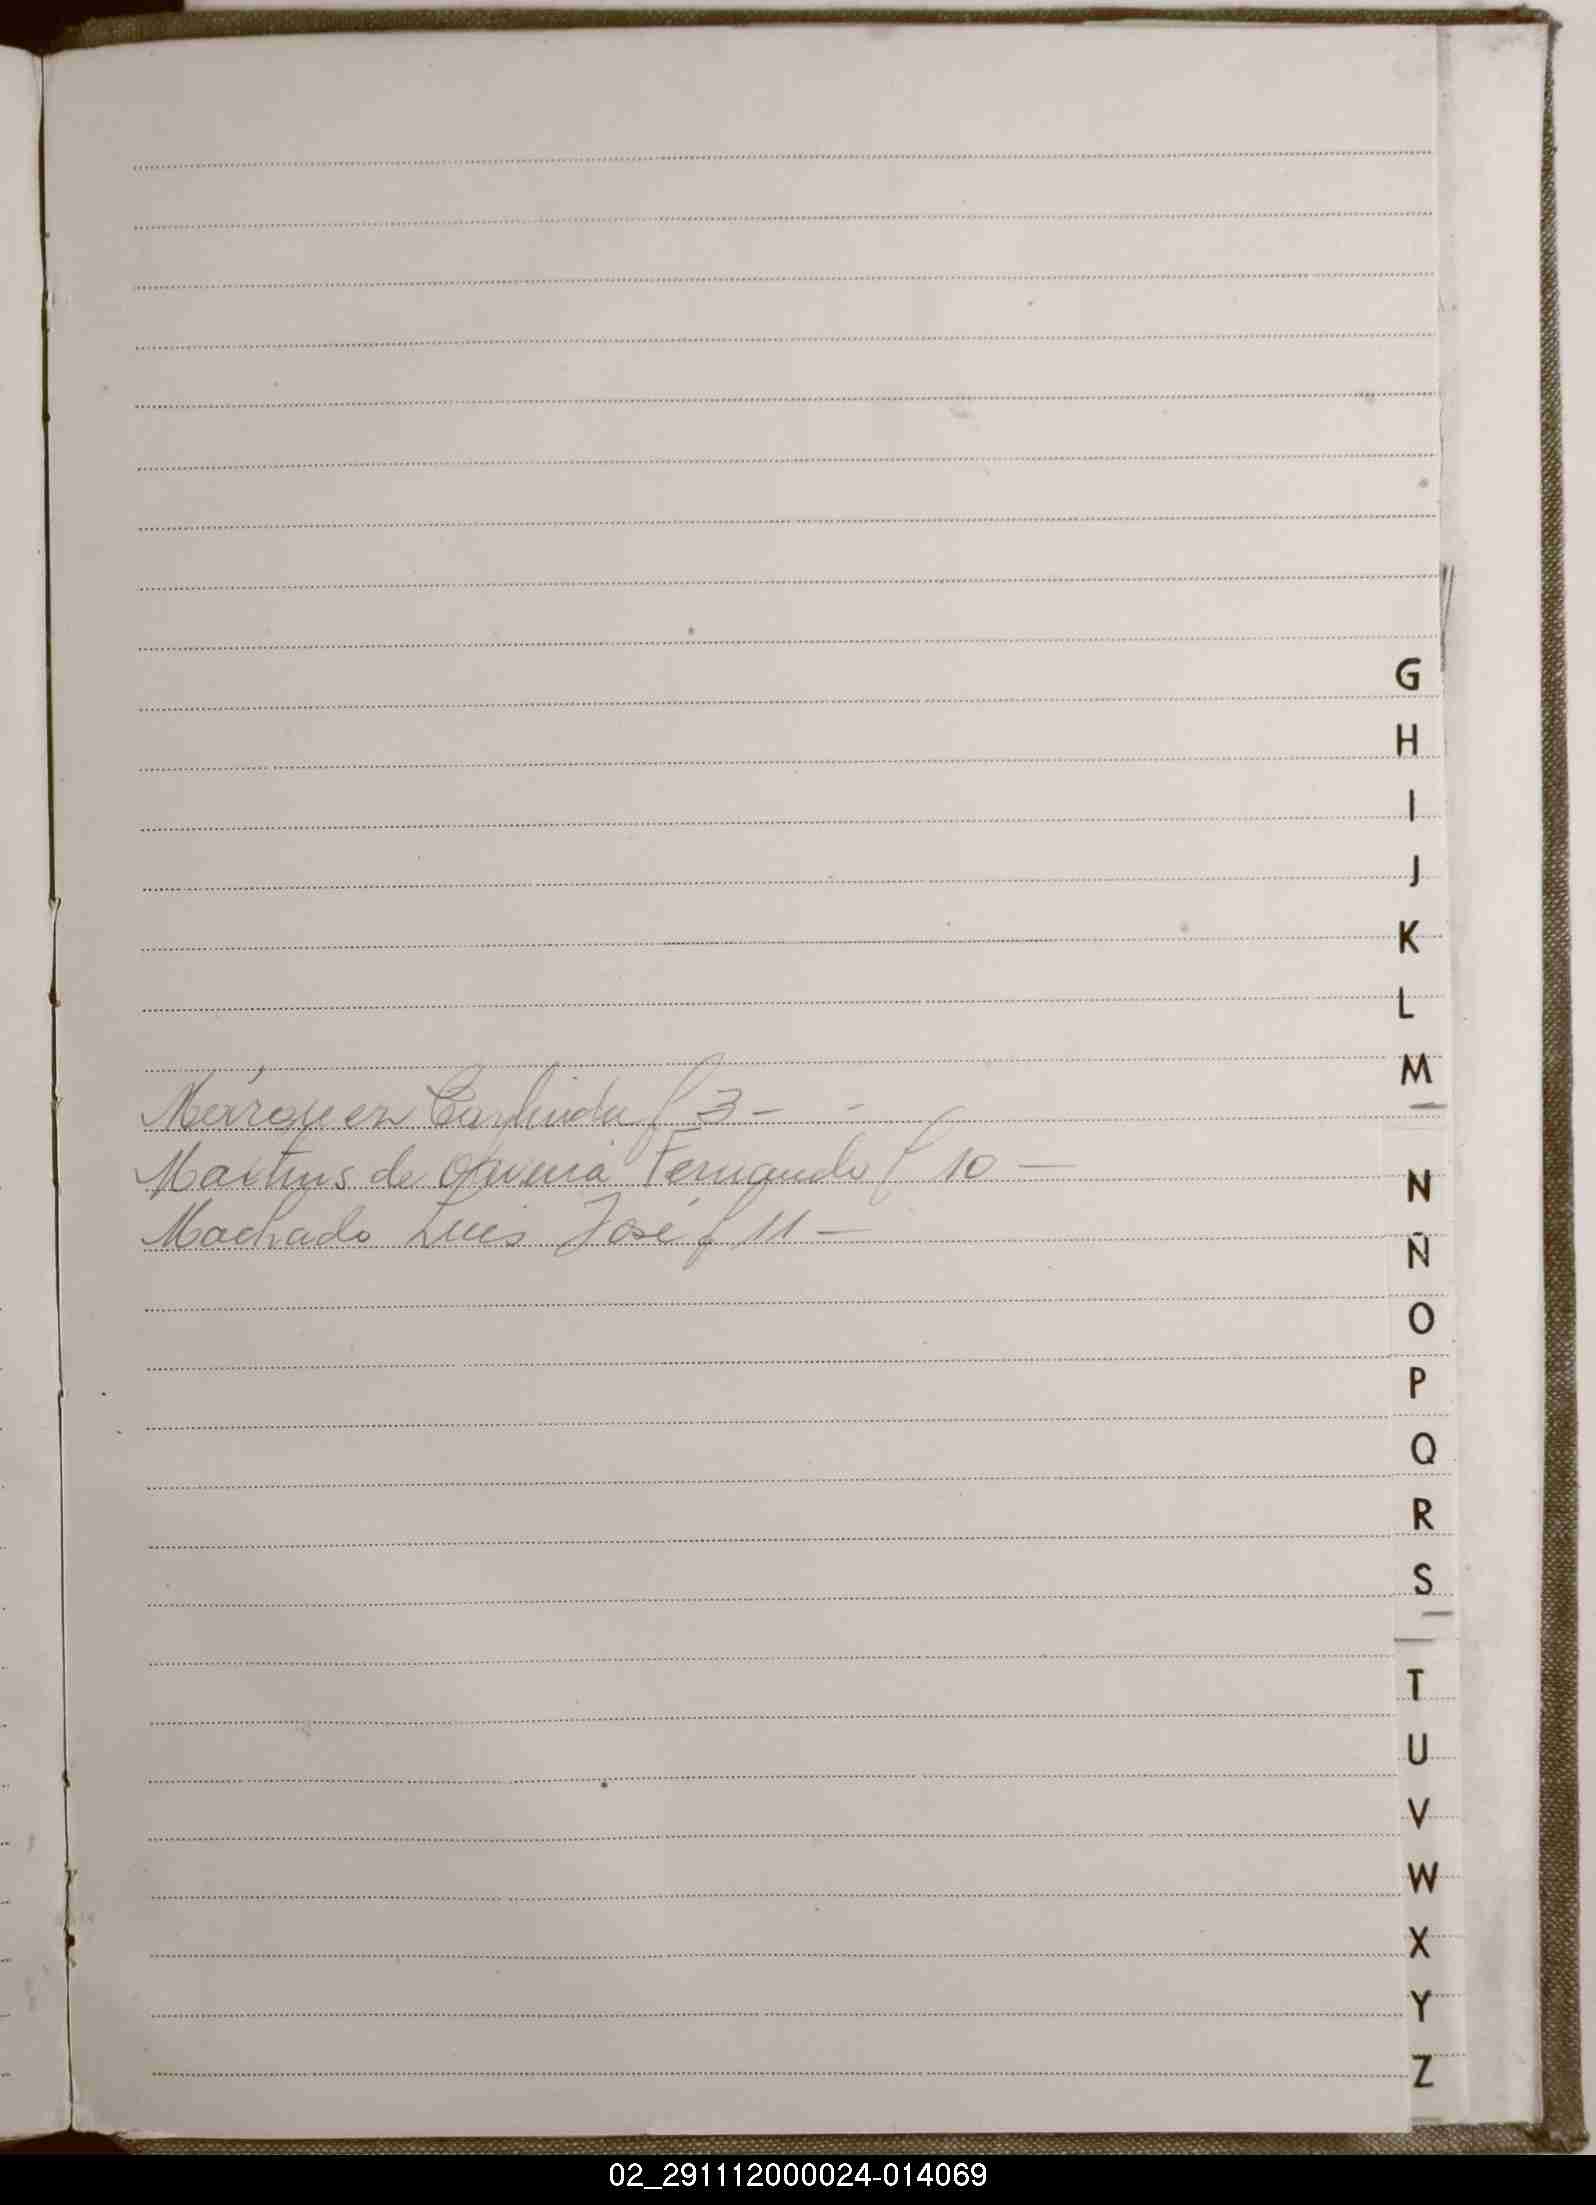 G
H
I
J
K
L
M
Márquez Carlinda f 3 -
Martins de Oliveira Fernando f 10 —
Machado Luis José f 11 —
N
Ñ
O
P
Q
R
S
T
U
V
W
X
Y
Z
02_291112000024-014069